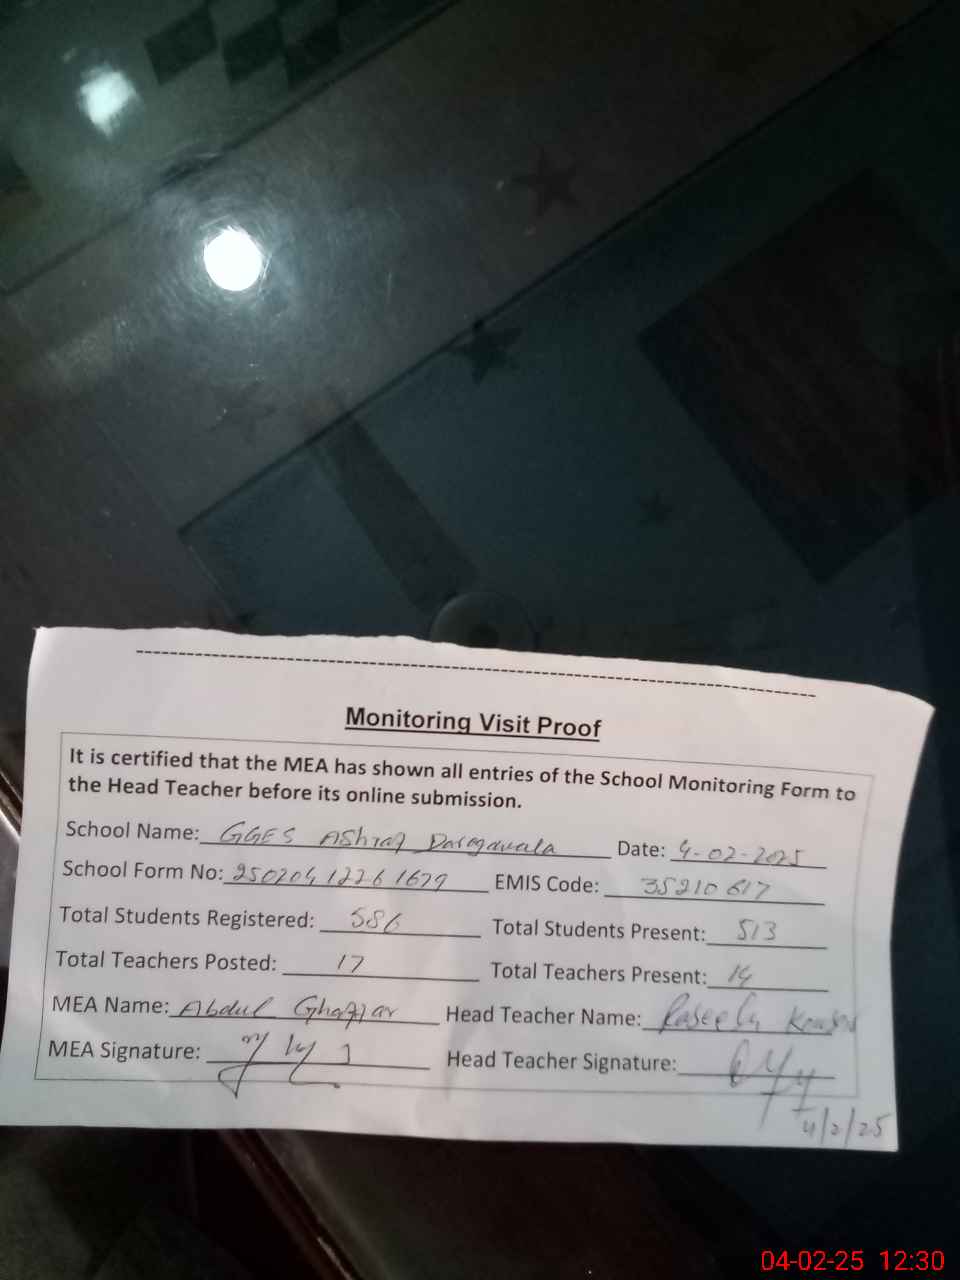 Monitoring Visit Proof
It is certified that the MEA has shown all entries of the School Monitoring Form to
the Head Teacher before its online submission.
School Name: GGES Ashraf Darogawala Date: 4-02-2025
School Form No: 250204 1226 1679 EMIS Code: 35210 617
Total Students Registered: 586 Total Students Present: 513
Total Teachers Posted: 17 Total Teachers Present: 14
MEA Name: Abdul Ghaffar Head Teacher Name:
MEA Signature: Head Teacher Signature:
4/2/25
04-02-25 12:30